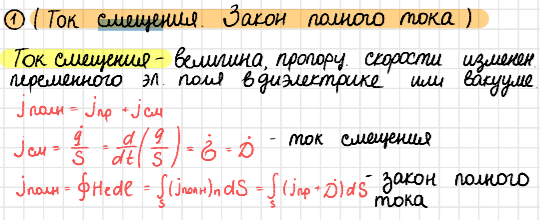 ① (Ток смещения. Закон полного тока)
Ток смещения - величина, пропор. скорости изменен.
переменного эл. поля в диэлектрике или вакууме
jполн = jпр + jсм
jсм = q̇/S = d/dt(q/S) = σ̇ = Ḋ - ток смещения
jполн = ∮Hℓdℓ = ∫S(jполн)n dS = ∫S(jпр + Ḋ)dS - закон полного
тока